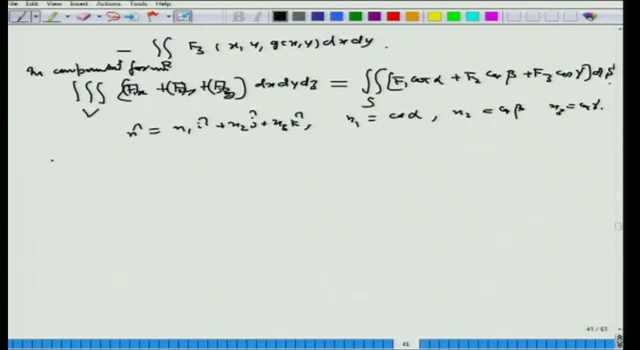 File Edit View Insert Actions Tools Help
— ∬_R F₃ (x, y, g(x,y)) dx dy.
In component form
∭_V [(F₁)x + (F₂)y + (F₃)z] dx dy dz = ∬_S [F₁ cos α + F₂ cos β + F₃ cos γ] ds
n̂ = n₁ î + n₂ ĵ + n₃ k̂, n₁ = cos α, n₂ = cos β n₃ = cos γ.
41 / 61
41